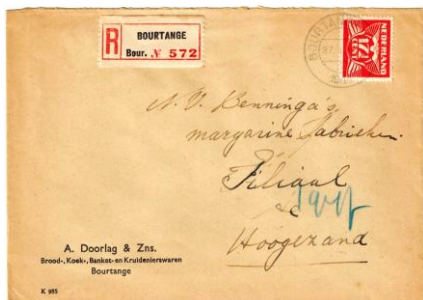 R BOURTANGE
Bour. № 572
BOURTANGE
NEDERLAND
17½
CENT
N. V. Benninga's
margarine fabrieken.
Filiaal
te
Hoogezand
A. Doorlag & Zns.
Brood-, Koek-, Banket- en Kruidenierswaren
Bourtange
K 985